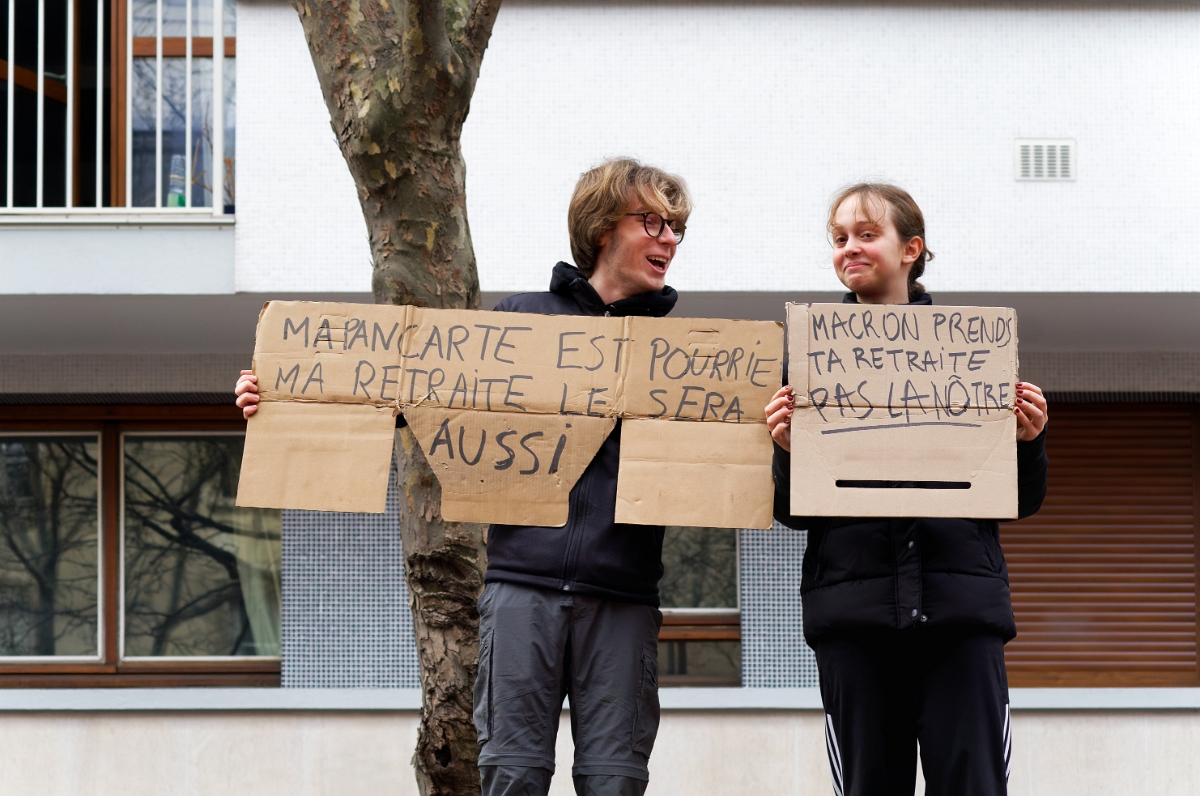 MA PANCARTE EST POURRIE
MA RETRAiTE LE SERA
AUSSi
MACRON PRENDS
TA RETRAiTE
PAS LA NÔTRE